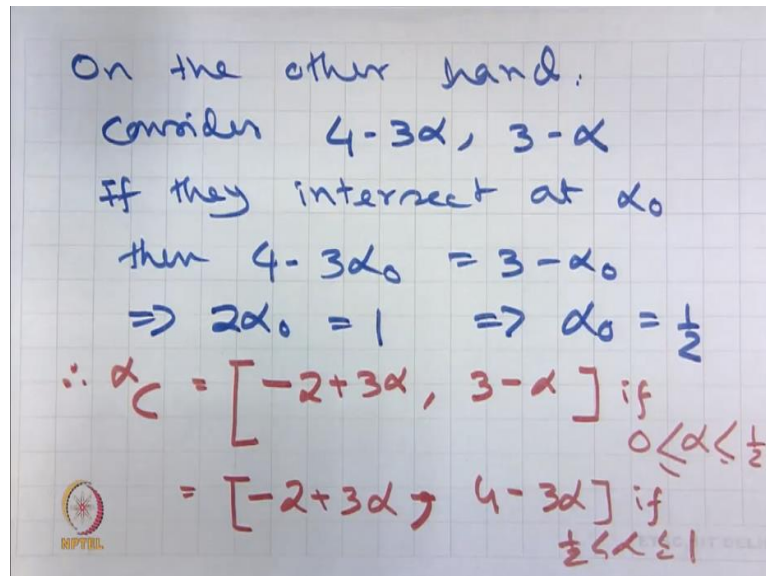 On the other hand.
Consider 4-3α, 3-α
If they intersect at α₀
then 4-3α₀ = 3-α₀
⇒ 2α₀ = 1 ⇒ α₀ = 1/2
∴ ᵅC = [-2+3α, 3-α] if
0≤α≤1/2
= [-2+3α, 4-3α] if
1/2≤α≤1
NPTEL